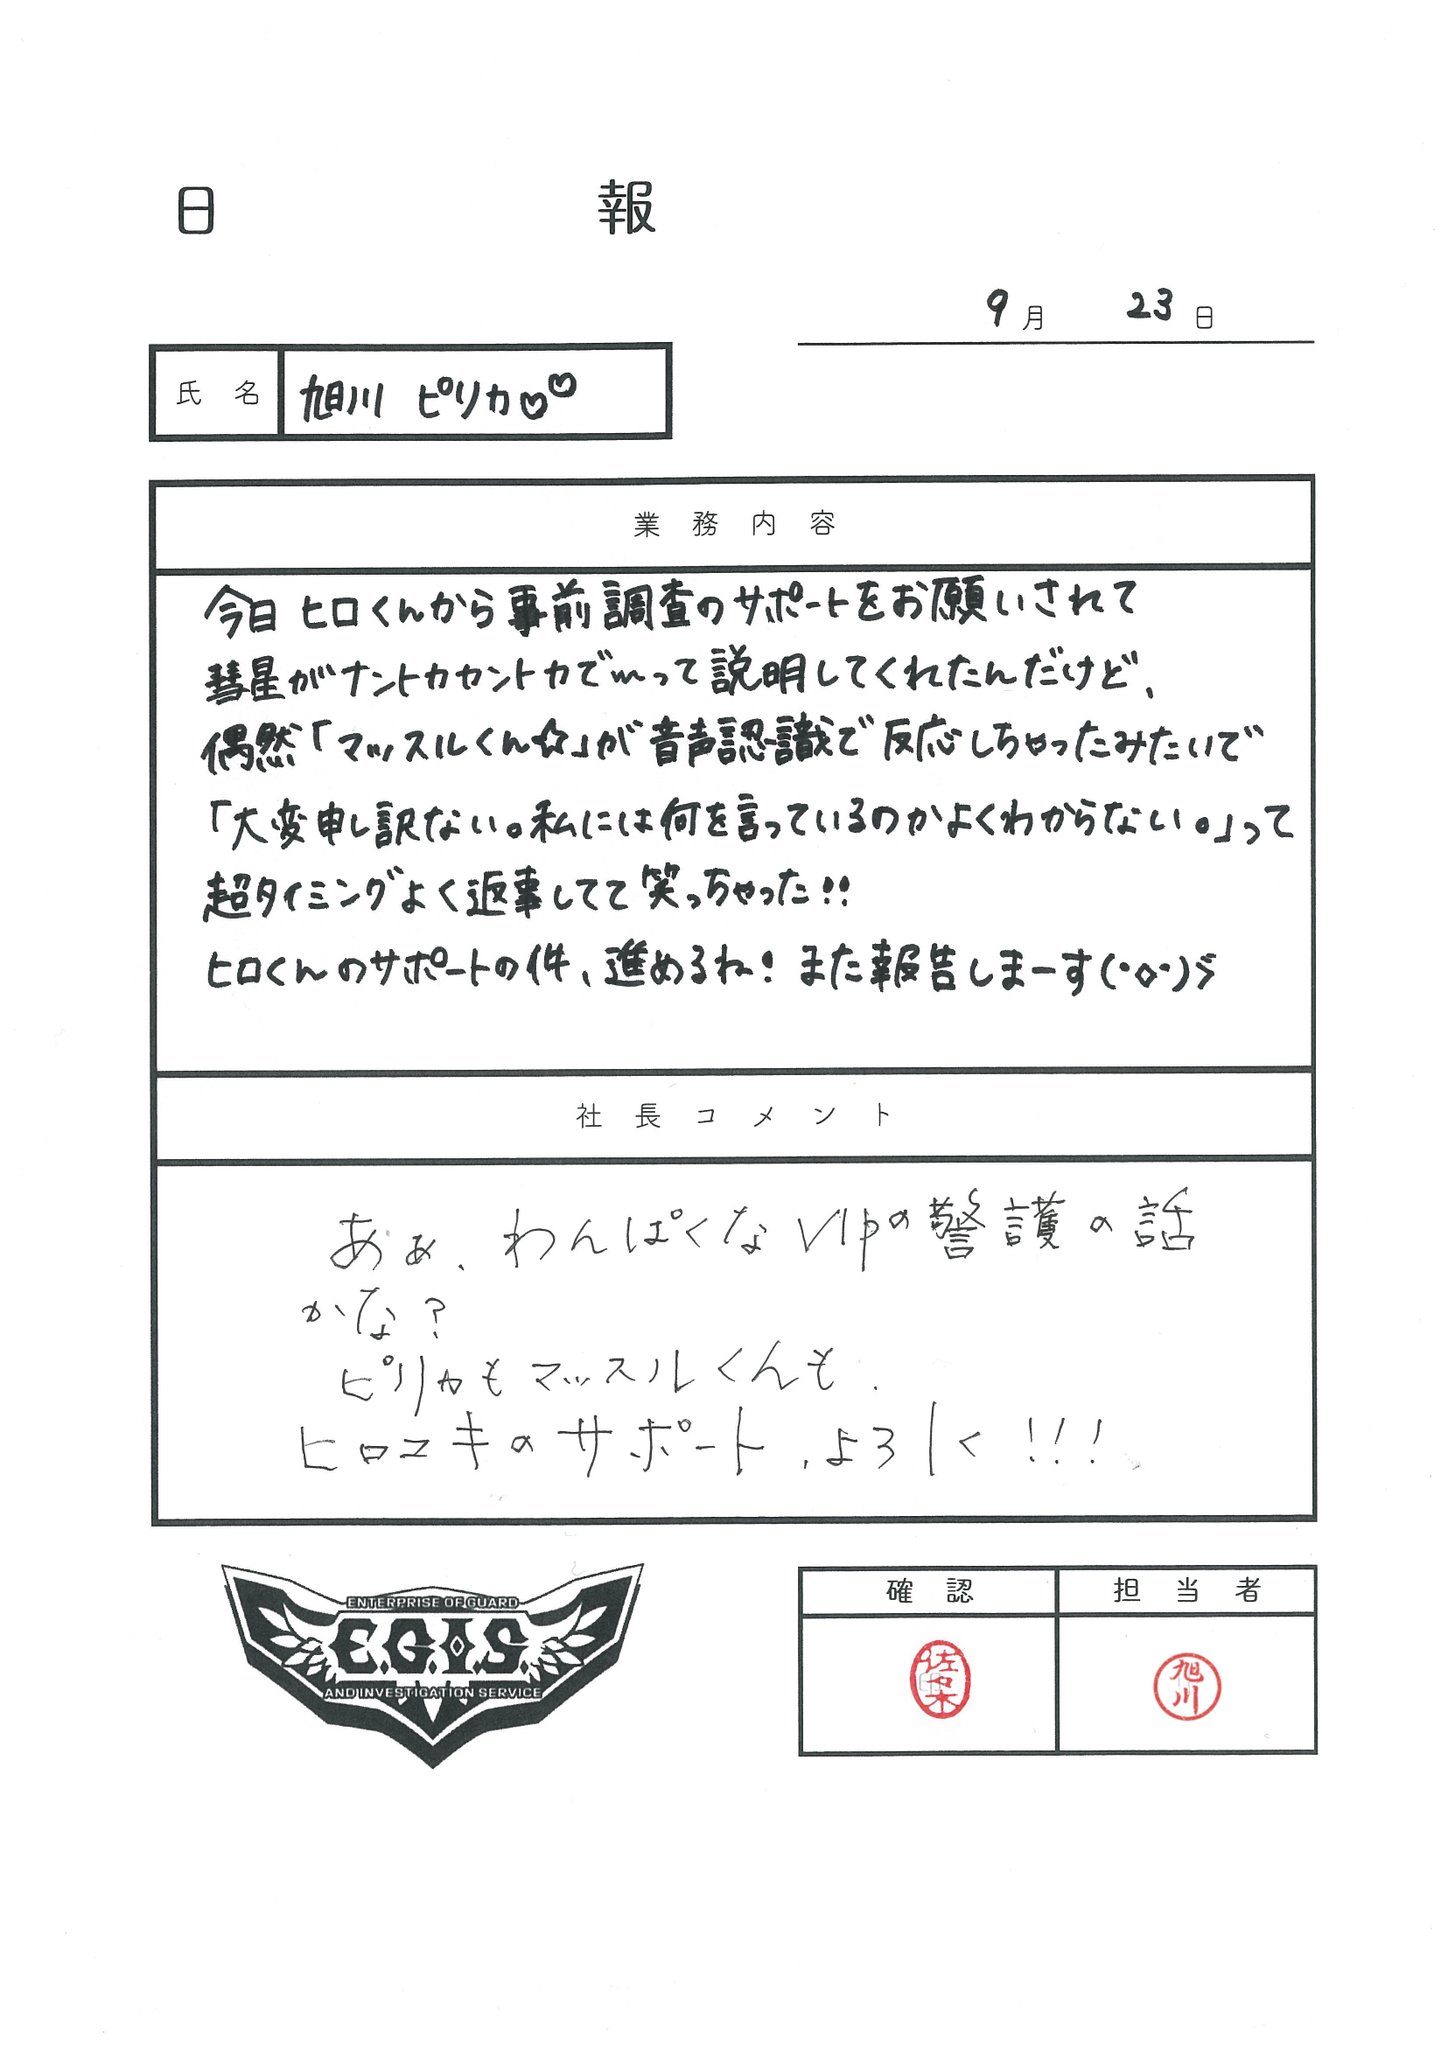 日 報
9月 23日
氏名 旭川 ピリカ♡♡
業務内容
今日ヒロくんから事前調査のサポートをお願いされて
彗星がナントカカントカで〰って説明してくれたんだけど、
偶然「マッスルくん☆」が音声認識で反応しちゃったみたいで
「大変申し訳ない。私には何を言っているのかよくわからない。」って
超タイミングよく返事してて笑っちゃった!!
ヒロくんのサポートの件、進めるね! また報告しまーす(・◇・)ゞ
社長コメント
あぁ、わんぱくなVIPの警護の話
かな?
ピリカもマッスルくんも、
ヒロユキのサポート、よろしく!!!
ENTERPRISE OF GUARD
E.G.I.S.
AND INVESTIGATION SERVICE
確認 担当者
佐々木 旭川